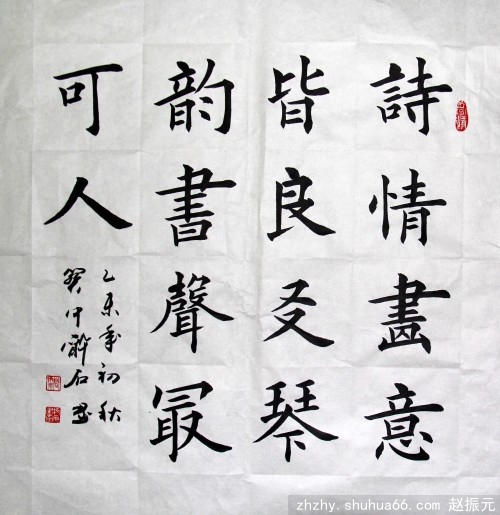 詩情畫意
皆良友琴
韵書聲最
可人
乙未年初秋
關中醉石書
zhzhy.shuhua66.com 赵振元